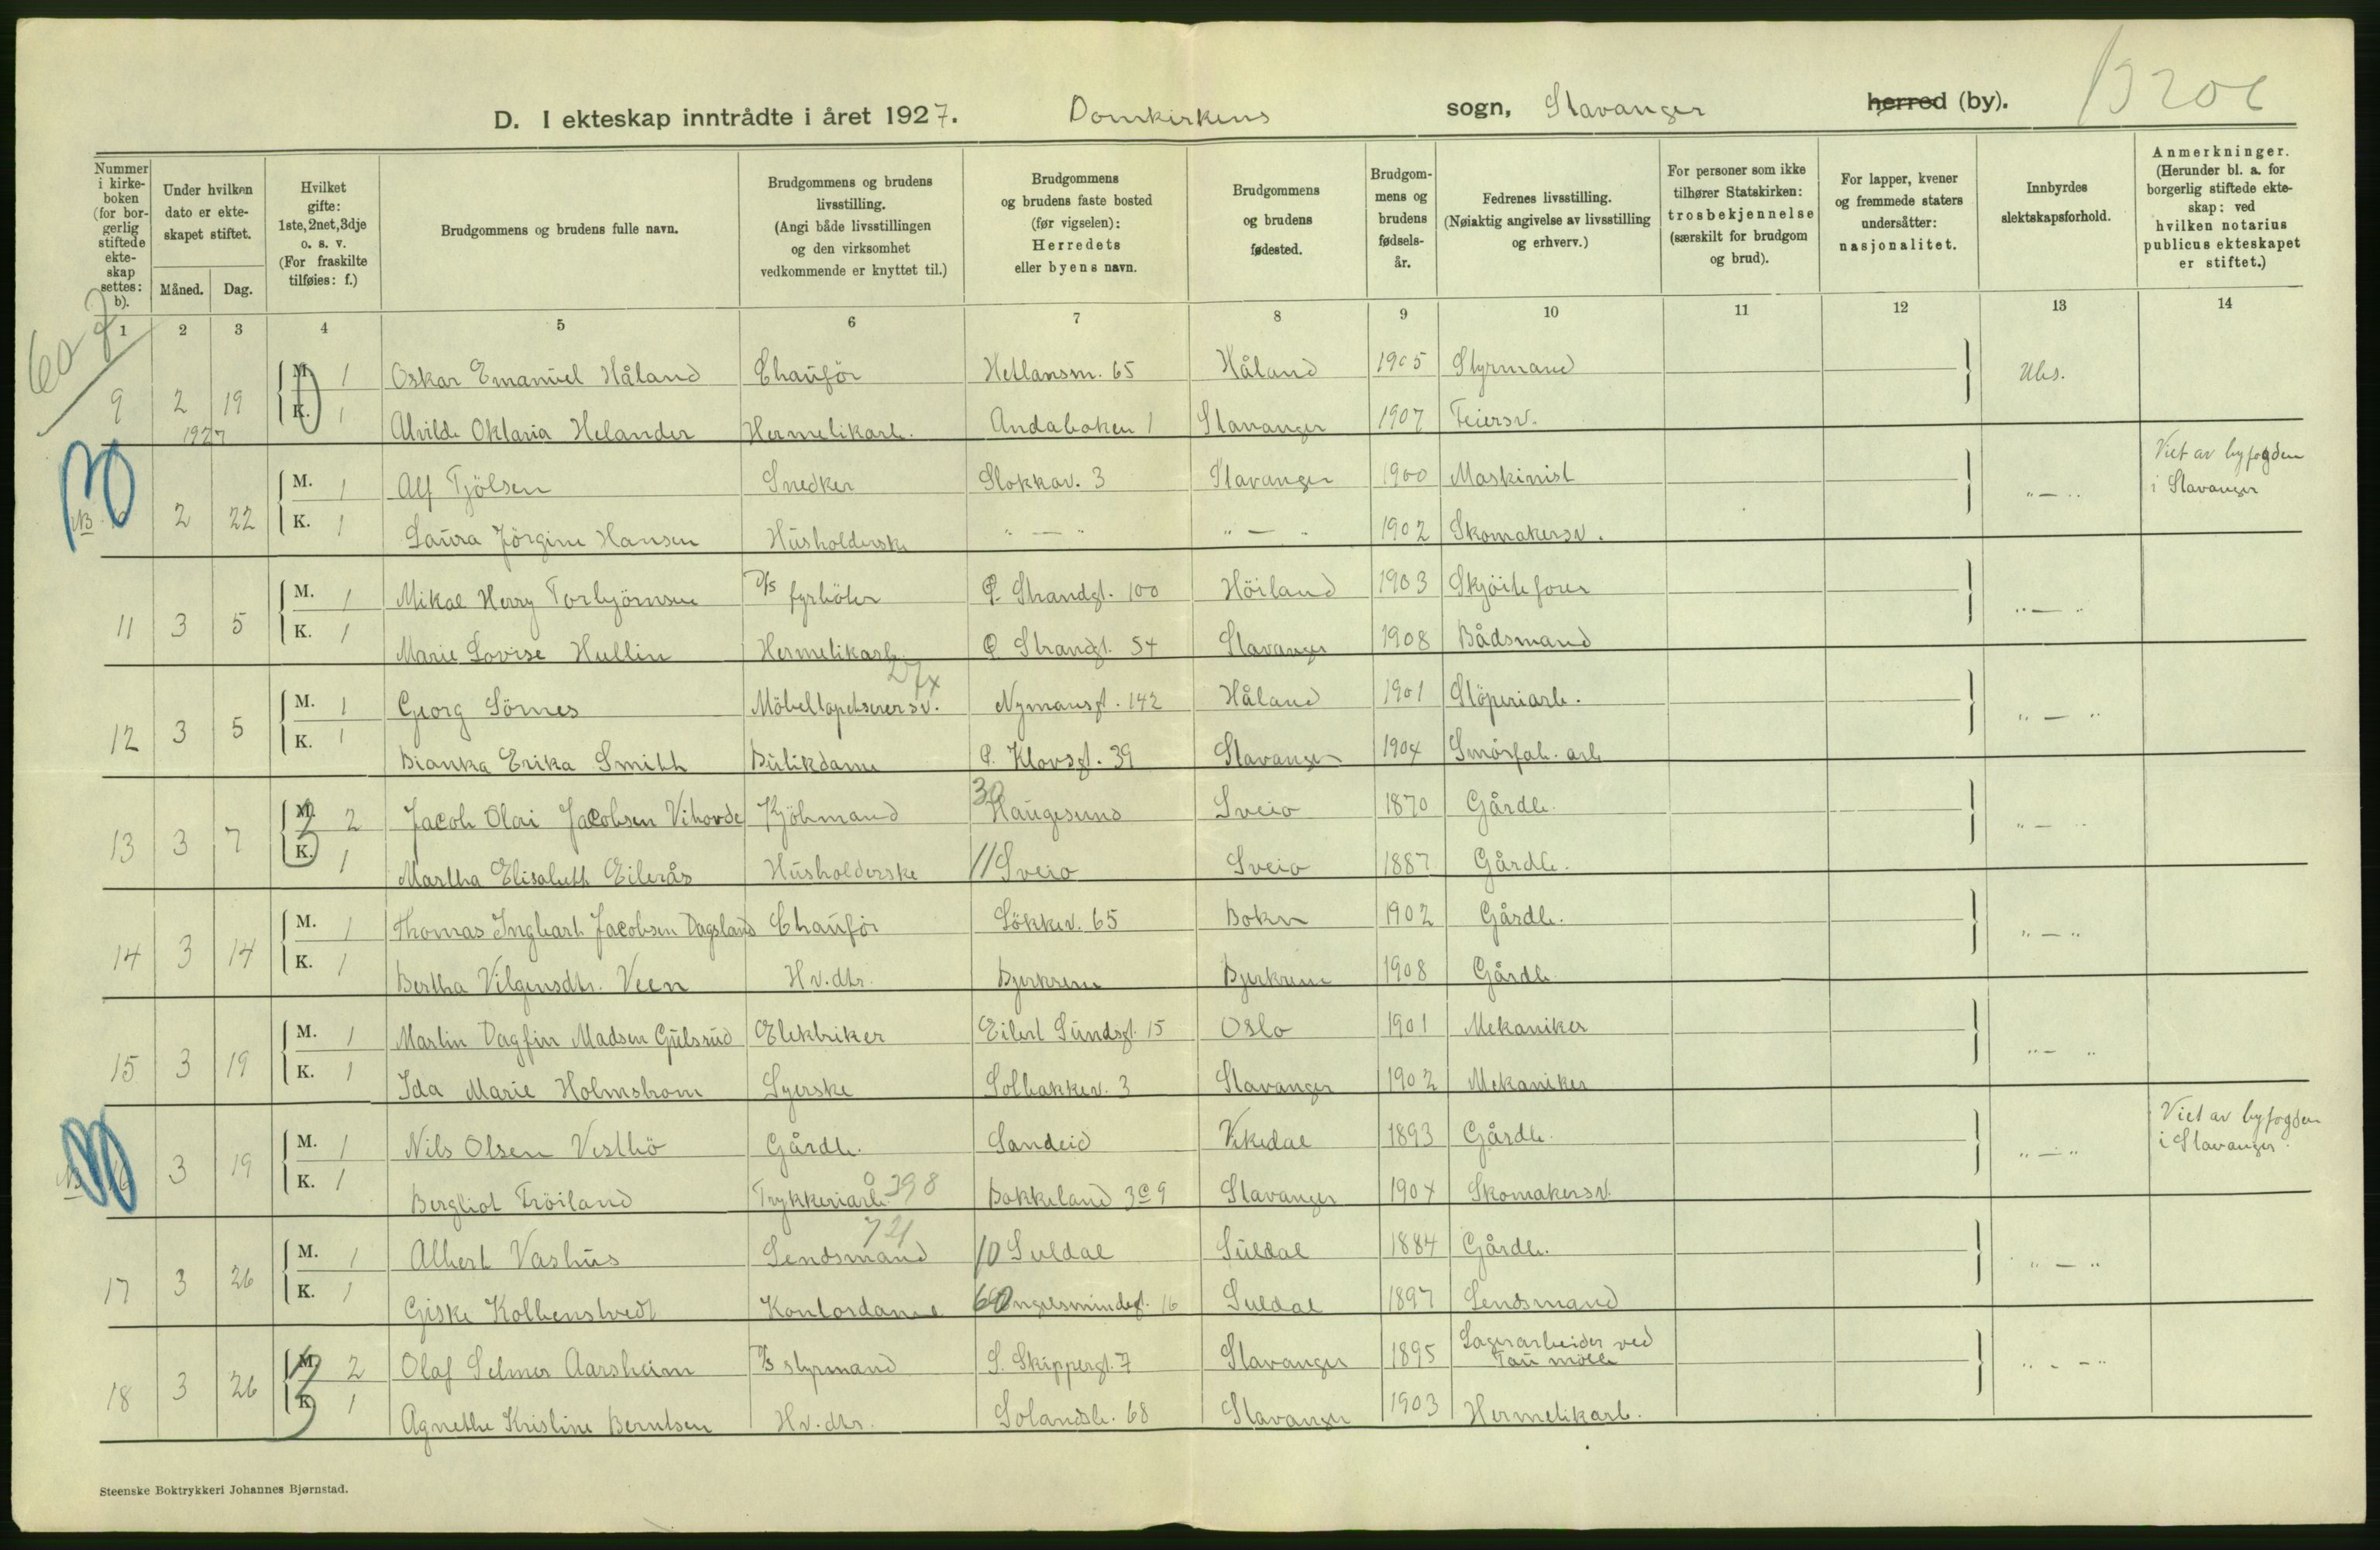 D. I ekteskap inntrådte i året 1927. Domkirkens sogn, Stavanger herred (by).
Nummer i kirkeboken (for borgerlig stiftede ekteskap settes: b).
Under hvilken dato er ekteskapet stiftet.
Måned. Dag.
Hvilket gifte: 1ste, 2net, 3dje o. s. v. (For fraskilte tilføies: f.)
Brudgommens og brudens fulle navn.
Brudgommens og brudens livsstilling. (Angi både livsstillingen og den virksomhet vedkommende er knyttet til.)
Brudgommens og brudens faste bosted (før vigselen): Herredets eller byens navn.
Brudgommens og brudens fødested.
Brudgommens og brudens fødselsår.
Fedrenes livsstilling. (Nøiaktig angivelse av livsstilling og erhverv.)
For personer som ikke tilhører Statskirken: trosbekjennelse (særskilt for brudgom og brud).
For lapper, kvener og fremmede staters undersåtter: nasjonalitet.
Innbyrdes slektskapsforhold.
Anmerkninger. (Herunder bl. a. for borgerlig stiftede ekteskap: ved hvilken notarius publicus ekteskapet er stiftet.)
1 2 3 4 5 6 7 8 9 10 11 12 13 14
M. 1 Oskar Emanuel Håland Chauför Hetlansm. 65 Håland 1905 Styrmand Ubs.
9 2 19 K. 1 Alvilde Oktavia Helander Hermetikarb. Andabaken 1 Stavanger 1907 Feiersv.
1927
M. 1 Alf Tjölsen Snedker Stokkav. 3 Stavanger 1900 Maskinist " — " Viet av byfogden i Stavanger
2 22 K. 1 Laura Jörgine Hansen Husholderske " — " " — " 1902 Skomakersv.
M. 1 Mikal Herry Torbjörnsen D/S fyrböter Ø. Strandgt. 100 Höiland 1903 Skjöiteförer " — "
11 3 5 K. 1 Marie Lovise Hullin Hermetikarb. Ø. Strandgt. 54 Stavanger 1908 Bådsmand
M. 1 Georg Sörnes Möbeltapetserersv. Nymansgt. 142 Håland 1901 Stöperiarb. " — "
12 3 5 K. 1 Bianka Erika Smith Butikdame P. Klovsgt. 39 Stavanger 1904 Smörfab. arb
M. 2 Jacob Olai Jacobsen Vihovde Kjöbmand 30 Haugesund Sveio 1870 Gårdb. " — "
13 3 7 K. 1 Martha Elisabeth Eilerås Husholderske 11 Sveio Sveio 1887 Gårdb.
M. 1 Thomas Ingbart Jacobsen Dagsland Chauför Lökkev. 65 Bokn 1902 Gårdb. " — "
14 3 14 K. 1 Bertha Vilgensdtr. Veen Hv. dtr. Bjerkrem Bjerkrem 1908 Gårdb.
M. 1 Martin Dagfin Madsen Gulsrud Elektriker Eilert Sundsgt. 15 Oslo 1901 Mekaniker " — "
15 3 19 K. 1 Ida Marie Holmstrom Syerske Solbakkev. 3 Stavanger 1902 Mekaniker
M. 1 Nils Olsen Vestbö Gårdb. Sandeid Vikedal 1893 Gårdb. " — " Viet av byfogden i Stavanger.
3 19 K. 1 Bergliot Fröiland Trykkeriarb. 398 Bakkeland 3c 9 Stavanger 1904 Skomakersv.
M. 1 Albert Vashus Lendsmand 721 10 Suldal Suldal 1884 Gårdb. " — "
17 3 26 K. 1 Giske Kolbenstvedt Kontordame Engelsmindegt. 16 Suldal 1897 Lendsmand
M. 2 Olaf Selmer Aarsheim D/S styrmand S. Skippergt. 7 Stavanger 1895 Lagerarbeider ved Tau mölle " — "
18 3 26 K. 1 Agnethe Kristine Berntsen Hv. dtr. Solandsb. 68 Stavanger 1903 Hermetikarb.
Steenske Boktrykkeri Johannes Bjørnstad.